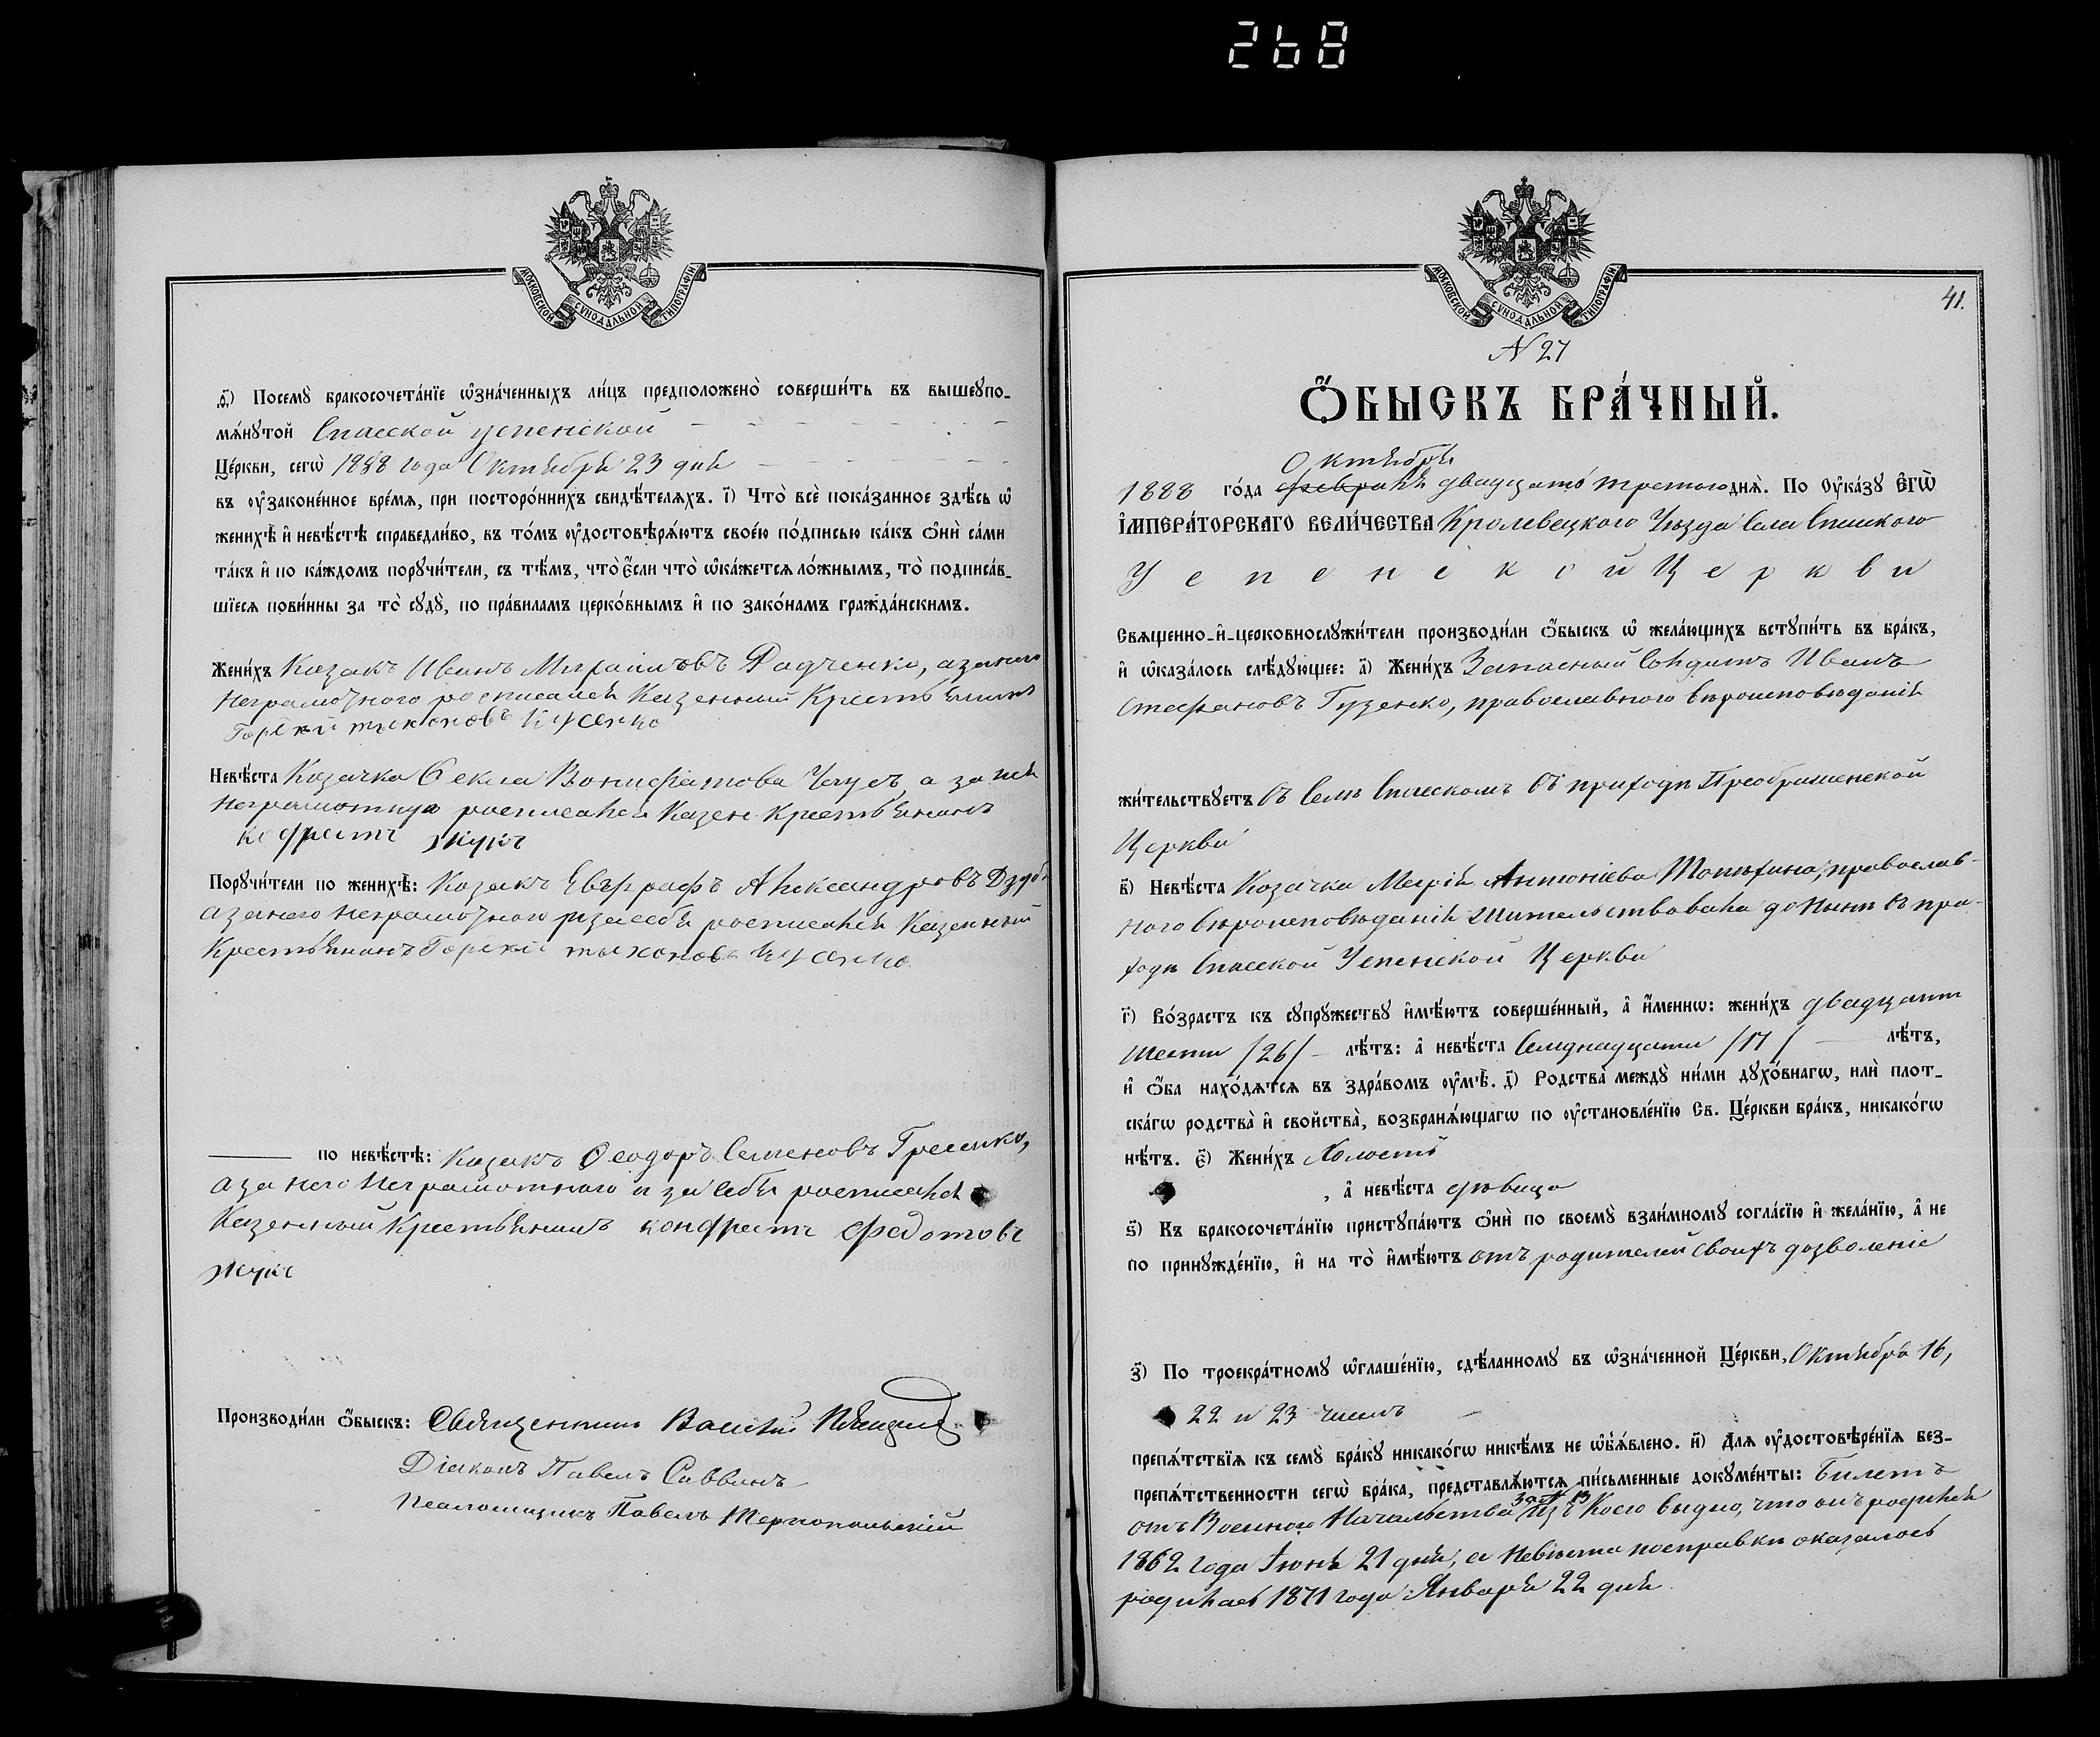 268
МОСКОВСКОЙ СѴНОДАЛЬНОЙ ТИПОГРАФІИ
ѳ҃) Посемꙋ̀ бракосочета́нїе ѡ҆зна́ченныхъ ли́цъ предположено̀ соверши́ть въ вышеꙋпо-
мѧ́нꙋтой Спасской Успенской
Це́ркви, сегѡ̀ 1888 года Октября 23 дня
въ ᲂу҆законе́нное вре́мѧ, при посторо́ннихъ свидѣ́телѧхъ. і҃) Что̀ всѐ пока́занное здѣ́сь ѡ҆
женихѣ̀ и҆ невѣ́стѣ справедли́во, въ то́мъ ᲂу҆достовѣрѧ́ютъ свое́ю по́дписью ка́къ ѻ҆нѝ са́ми
та́къ и҆ по ка́ждомъ порꙋчи́тели, съ тѣ́мъ, что̀ є҆́сли что̀ ѡ҆ка́жетсѧ ло́жнымъ, то̀ подписа́в-
шїесѧ пови́нны за то̀ сꙋдꙋ̀, по пра́виламъ церко́внымъ и҆ по зако́намъ гражда́нскимъ.
Жени́хъ Казакъ Иванъ Радченко, а за него
неграмотного росписался Казенный Крестьянинъ
Невѣ́ста Козачка Ѳекла Вонифатова а за неи
неграмотную росписался Казен. Крестьянинъ
Жукъ
Порꙋчи́тели по женихѣ̀: Козакъ Евграфъ Александровъ
а за него неграмотного и за себя росписался Казенный
Крестьянинъ
по невѣ́стѣ: Казакъ Ѳеодоръ Семеновъ
а за него неграмотного и за себя росписался
Казенный Крестьянинъ Федотовъ
Жукъ
Производи́ли ѻ҆́быскъ: Священникъ Василій
Діаконъ Павелъ Саввинъ
Псаломщикъ Павелъ Тернопольскій
МОСКОВСКОЙ СѴНОДАЛЬНОЙ ТИПОГРАФІИ
41.
N 27
Ѻ҆́БЫСКЪ БРА́ЧНЫЙ.
Октября
1888 го́да февраля двадцать третьего днѧ̀. По ᲂу҆ка́зꙋ Є҆ГѠ̀
І҆МПЕРА́ТОРСКАГО ВЕЛИ́ЧЕСТВА Кролевецкого Уѣзда Села Спасского
Успенской Церкви
Свѧщенно-и҆-церковнослꙋжи́тели производи́ли ѻ҆́быскъ ѡ҆ жела́ющихъ встꙋпи́ть въ бра́къ,
и҆ ѡ҆каза́лось слѣ́дꙋющее: а҃) Жени́хъ Запасный Солдатъ Иванъ
Стефановъ Гузенко, православного вѣроисповѣданія
жи́тельствꙋетъ въ Селѣ Спасскомъ въ приходѣ Преображенской
Церкви
в҃) Невѣ́ста Козачка Марія Антоніева православ-
ного вѣроисповѣданія жительствовала до нынѣ въ при-
ходѣ Спасской Успенской Церкви
г҃) Во́зрастъ къ сꙋпрꙋ́жествꙋ и҆мѣ́ютъ соверше́нный, а҆ и҆́меннѡ: жени́хъ двадцати
шести /26/ лѣ́тъ: а҆ невѣ́ста Семнадцати /17/ лѣ́тъ,
и҆ ѻ҆́ба нахо́дѧтсѧ въ здра́вомъ ᲂу҆мѣ̀. д҃) Родства̀ междꙋ̀ ни́ми дꙋхо́внагѡ, илѝ плот-
ска́гѡ родства̀ и҆ свойства̀, возбранѧ́ющагѡ по ᲂу҆становле́нїю Св. Це́ркви бра́къ, никако́гѡ
нѣ́тъ. є҃) Жени́хъ Холостъ
, а҆ невѣ́ста дѣвица
ѕ҃) Къ бракосочета́нїю пристꙋпа́ютъ ѻ҆нѝ по своемꙋ̀ взаи́мномꙋ согла́сїю и҆ жела́нїю, а҆ не
по принꙋжде́нїю, и҆ на то̀ и҆мѣ́ютъ отъ родителей своихъ дозволеніе
з҃) По троекра́тномꙋ ѡ҆глаше́нїю, сдѣ́ланномꙋ въ ѡ҆зна́ченной Це́ркви, Октября 16,
22 и 23 чиселъ
препѧ́тствїѧ къ семꙋ̀ бра́кꙋ никако́гѡ никѣ́мъ не ѡ҆б̾ѧ́влено. и҃) Длѧ ᲂу҆достовѣре́нїѧ без-
препѧ́тственности сегѡ̀ бра́ка, представлѧ́ютсѧ пи́сьменные докꙋме́нты: Билетъ
отъ Военного Начальства за № 13 изъ Коего видно, что онъ родился
1862 года Іюня 21 дня, а невѣста по справкѣ оказалось
родилась 1871 года Января 22 дня.